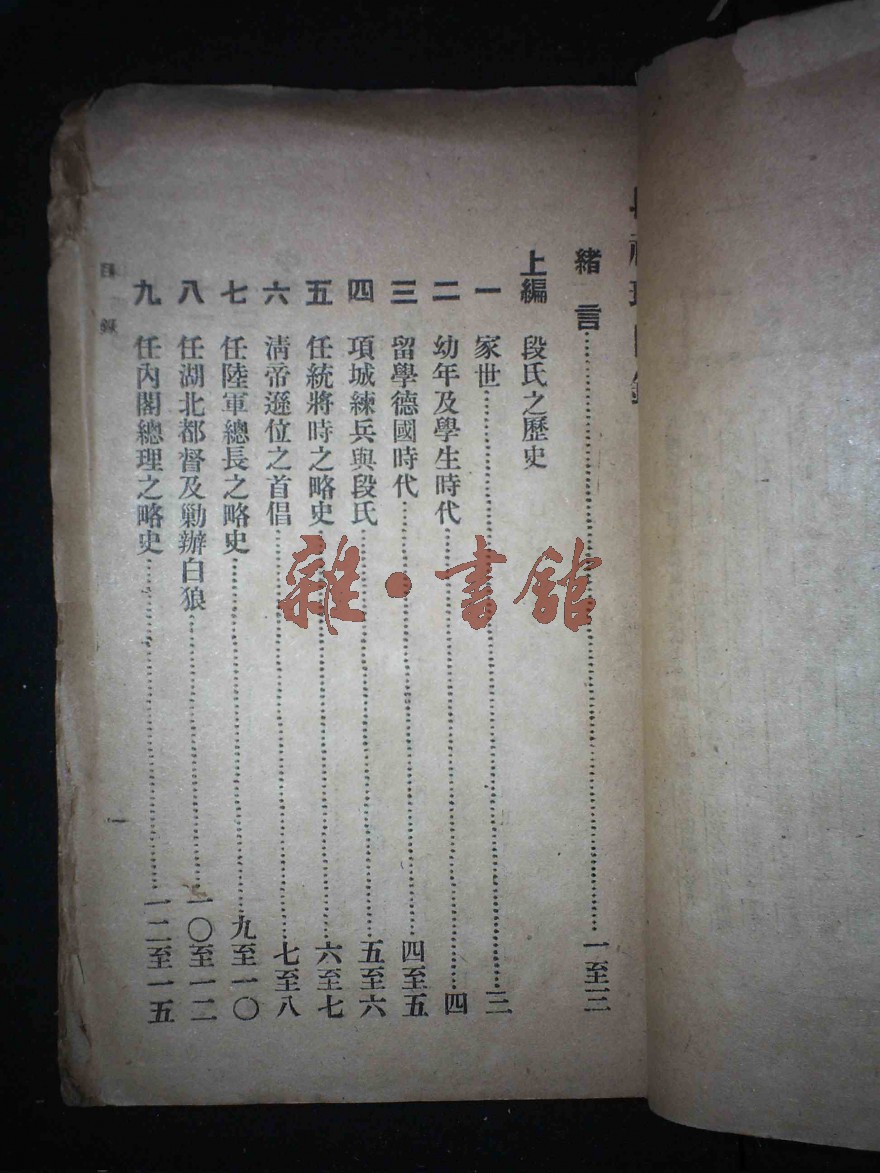 緒言……一至三
上編 段氏之歷史
一 家世……三
二 幼年及學生時代……四
三 留學德國時代……四至五
四 項城練兵與段氏……五至六
五 任統將時之略史……六至七
六 清帝遜位之首倡……七至八
七 任陸軍總長之略史……九至一〇
八 任湖北都督及勦辦白狼……一〇至一二
九 任內閣總理之略史……一二至一五
目錄 一
雜·書館